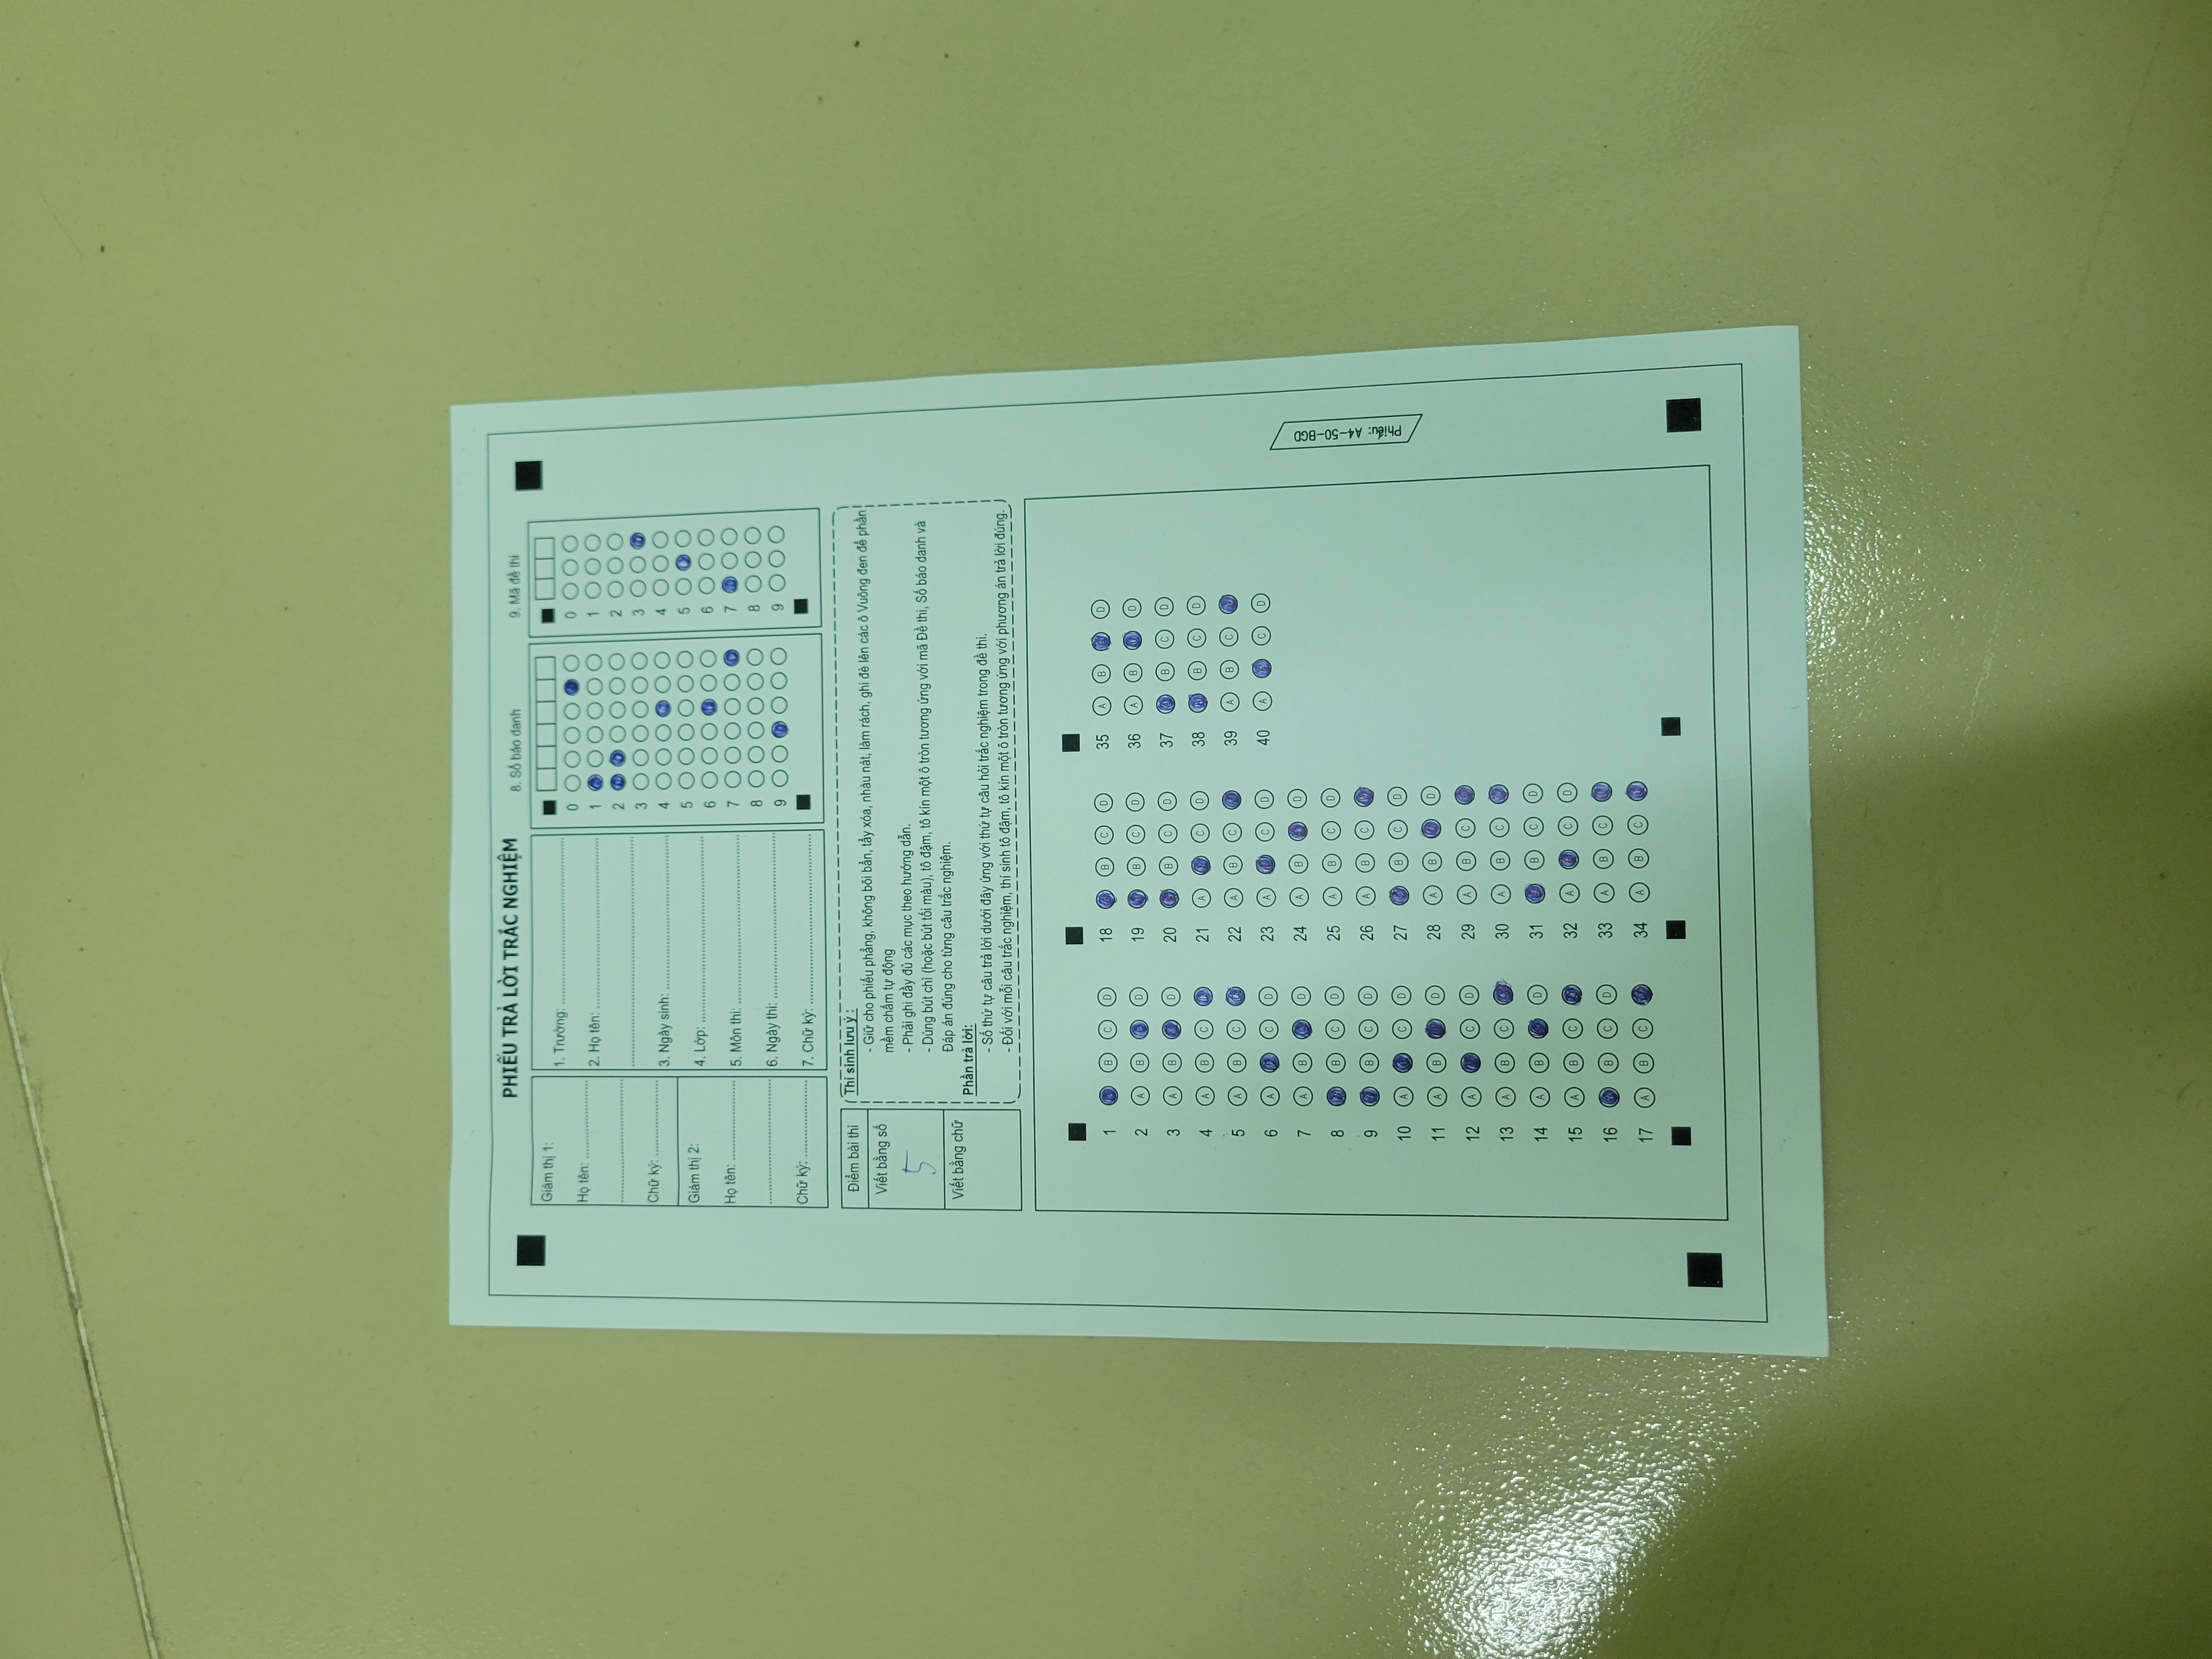 PHIẾU TRẢ LỜI TRẮC NGHIỆM
8. Số báo danh
9. Mã đề thi
Giám thị 1:
Họ tên:
Chữ ký:
Giám thị 2:
Họ tên:
Chữ ký:
1. Trường:
2. Họ tên:
3. Ngày sinh:
4. Lớp:
5. Môn thi:
6. Ngày thi:
7. Chữ ký:
0
1
2
3
4
5
6
7
8
9
0
1
2
3
4
5
6
7
8
9
Điểm bài thi
Viết bằng số
5
Viết bằng chữ
Thí sinh lưu ý :
- Giữ cho phiếu phẳng, không bôi bẩn, tẩy xóa, nhàu nát, làm rách, ghi đè lên các ô Vuông đen để phần
mềm chấm tự động
- Phải ghi đầy đủ các mục theo hướng dẫn.
- Dùng bút chì (hoặc bút tối màu), tô đậm, tô kín một ô tròn tương ứng với mã Đề thi, Số báo danh và
Đáp án đúng cho từng câu trắc nghiệm.
Phần trả lời:
- Số thứ tự câu trả lời dưới đây ứng với thứ tự câu hỏi trắc nghiệm trong đề thi.
- Đối với mỗi câu trắc nghiệm, thí sinh tô đậm, tô kín một ô tròn tương ứng với phương án trả lời đúng.
1 B C D
2 A B D
3 A B D
4 A B C
5 A B C
6 A C D
7 A B D
8 B C D
9 B C D
10 A C D
11 A B D
12 A C D
13 A B C
14 A B D
15 A B C
16 B C D
17 A B C
18 B C D
19 B C D
20 B C D
21 A C D
22 A B C
23 A C D
24 A B D
25 A B C D
26 A B C
27 B C D
28 A B D
29 A B C
30 A B C
31 B C D
32 A C D
33 A B C
34 A B C
35 A B D
36 A B D
37 B C D
38 B C D
39 A B C
40 A C D
Phiếu: A4-50-BGD